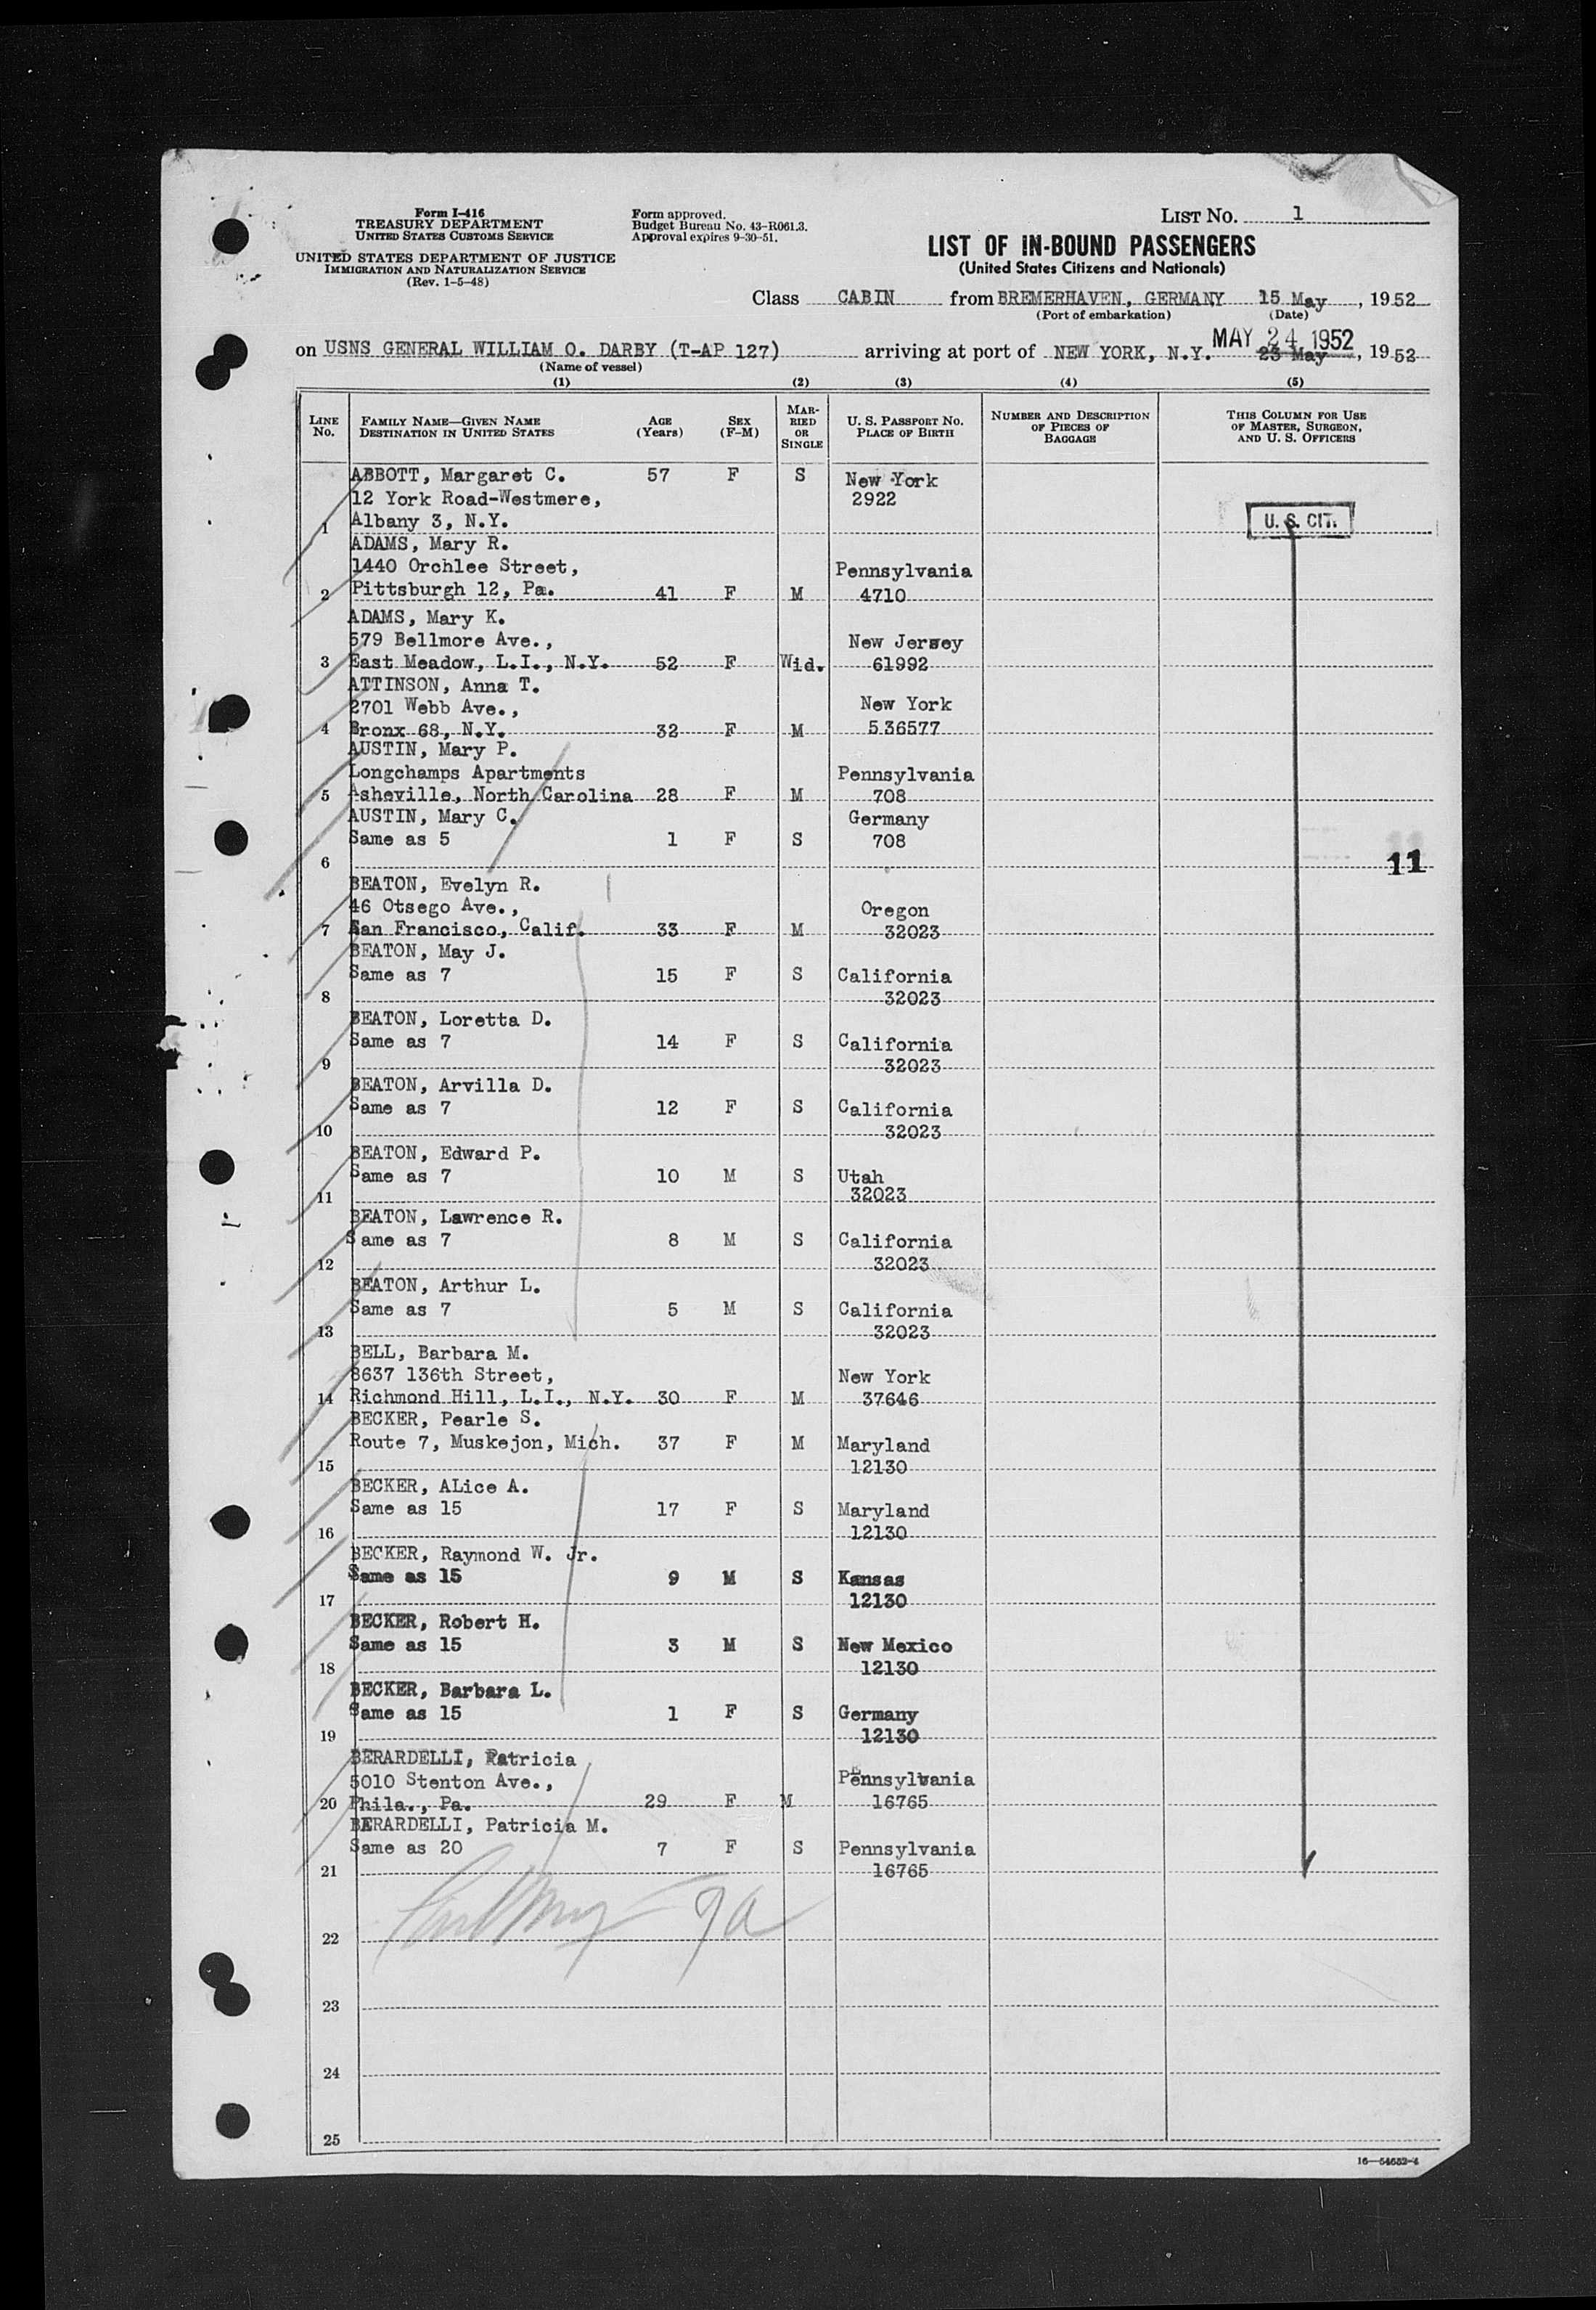 Form I-416
TREASURY DEPARTMENT
UNITED STATES CUSTOMS SERVICE
UNITED STATES DEPARTMENT OF JUSTICE
IMMIGRATION AND NATURALIZATION SERVICE
(Rev. 1-5-48)
Form approved.
Budget Bureau No. 43-R061.3.
Approval expires 9-30-51.
LIST NO. 1
LIST OF IN-BOUND PASSENGERS
(United States Citizens and Nationals)
Class CABIN from BREMERHAVEN, GERMANY 15 May, 1952
(Port of embarkation) (Date)
MAY 24 1952
on USNS GENERAL WILLIAM O. DARBY (T-AP 127) arriving at port of NEW YORK, N.Y. 23 May, 1952
(Name of vessel)
(1) (2) (3) (4) (5)
LINE No. FAMILY NAME—GIVEN NAME DESTINATION IN UNITED STATES AGE (Years) SEX (F-M) MARRIED OR SINGLE U. S. PASSPORT NO. PLACE OF BIRTH NUMBER AND DESCRIPTION OF PIECES OF BAGGAGE THIS COLUMN FOR USE OF MASTER, SURGEON, AND U. S. OFFICERS
ABBOTT, Margaret C. 57 F S New York
12 York Road-Westmere, 2922
1 Albany 3, N.Y. U. S. CIT.
ADAMS, Mary R.
1440 Orchlee Street, Pennsylvania
2 Pittsburgh 12, Pa. 41 F M 4710
ADAMS, Mary K.
579 Bellmore Ave., New Jersey
3 East Meadow, L.I., N.Y. 52 F Wid. 61992
ATTINSON, Anna T.
2701 Webb Ave., New York
4 Bronx 68, N.Y. 32 F M 536577
AUSTIN, Mary P.
Longchamps Apartments Pennsylvania
5 Asheville, North Carolina 28 F M 708
AUSTIN, Mary C. Germany
Same as 5 1 F S 708
6 11
BEATON, Evelyn R.
46 Otsego Ave., Oregon
7 San Francisco, Calif. 33 F M 32023
BEATON, May J.
Same as 7 15 F S California
8 32023
BEATON, Loretta D.
Same as 7 14 F S California
9 32023
BEATON, Arvilla D.
Same as 7 12 F S California
10 32023
BEATON, Edward P.
Same as 7 10 M S Utah
11 32023
BEATON, Lawrence R.
Same as 7 8 M S California
12 32023
BEATON, Arthur L.
Same as 7 5 M S California
13 32023
BELL, Barbara M.
8637 136th Street, New York
14 Richmond Hill, L.I., N.Y. 30 F M 37646
BECKER, Pearle S.
Route 7, Muskejon, Mich. 37 F M Maryland
15 12130
BECKER, ALice A.
Same as 15 17 F S Maryland
16 12130
BECKER, Raymond W. Jr.
Same as 15 9 M S Kansas
17 12130
BECKER, Robert H.
Same as 15 3 M S New Mexico
18 12130
BECKER, Barbara L.
Same as 15 1 F S Germany
19 12130
BERARDELLI, Patricia
5010 Stenton Ave., Pennsylvania
20 Phila., Pa. 29 F M 16765
BERARDELLI, Patricia M.
Same as 20 7 F S Pennsylvania
21 16765
22
23
24
25
16—54652-4